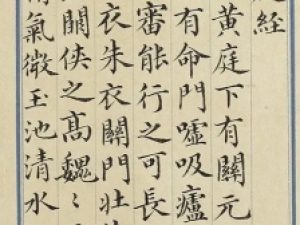 經
黃庭下有關元
有命門噓吸廬
審能行之可長
衣朱衣關門壯
關俠之高魏〻
氣微玉池清水